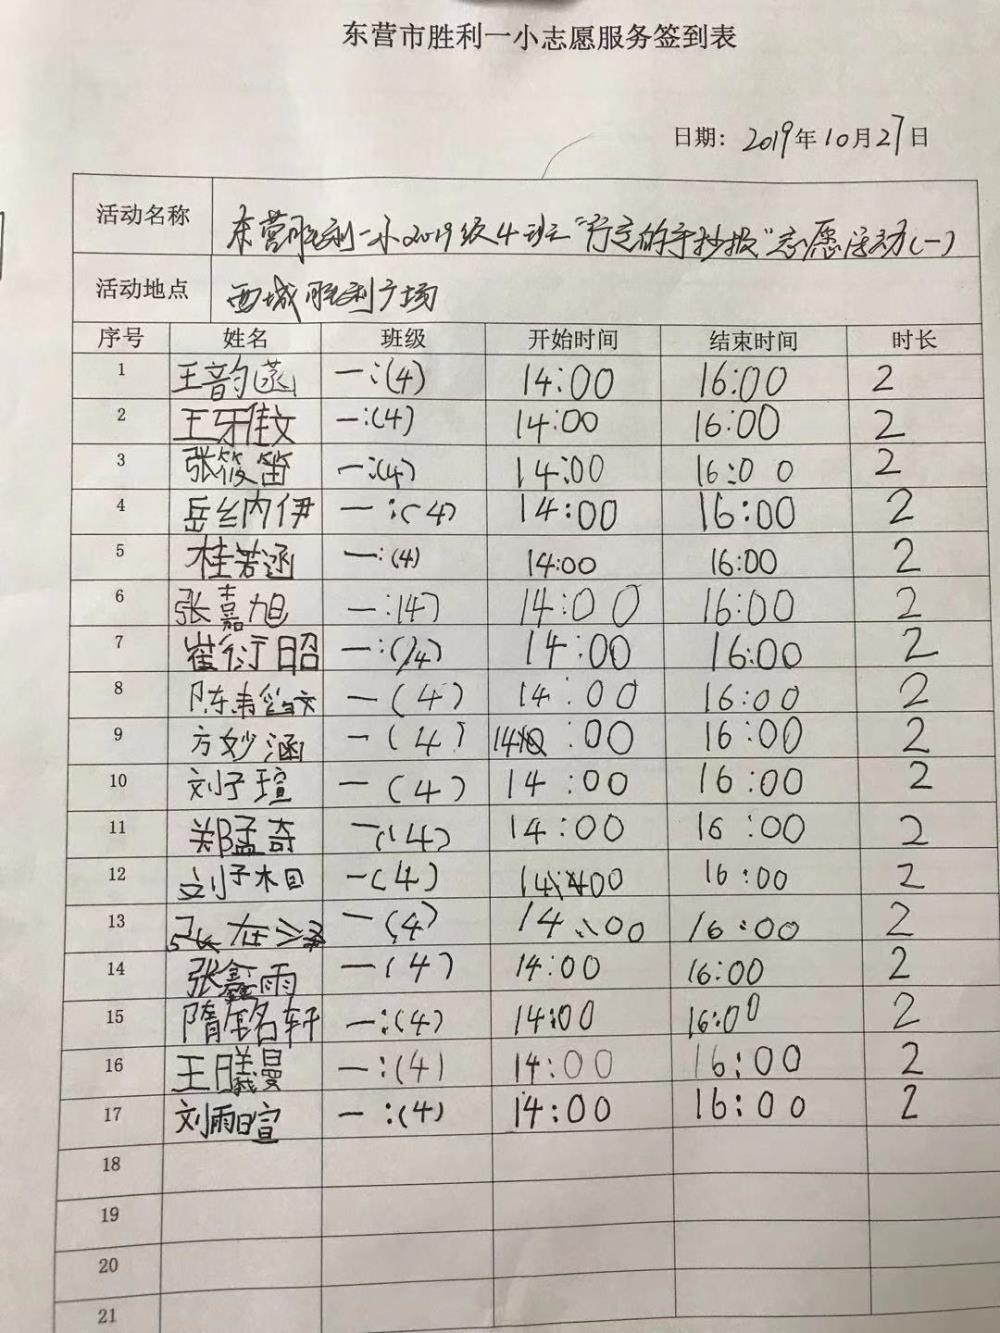 东营市胜利一小志愿服务签到表
日期: 2019年10月27日
活动名称 东营胜利一小2019级4班"行走的手抄报"志愿活动(一)
活动地点 西城胜利广场
序号 姓名 班级 开始时间 结束时间 时长
1 王韵菡 一:(4) 14:00 16:00 2
2 王牙佳文 一:(4) 14:00 16:00 2
3 张筱笛 一:(4) 14:00 16:00 2
4 岳纟内伊 一:(4) 14:00 16:00 2
5 桂若涵 一:(4) 14:00 16:00 2
6 张嘉旭 一:(4) 14:00 16:00 2
7 崔衍昭 一:(4) 14:00 16:00 2
8 陈 一(4) 14:00 16:00 2
9 方妙涵 一(4) 14:00 16:00 2
10 刘子瑄 一(4) 14:00 16:00 2
11 郑孟奇 一(4) 14:00 16:00 2
12 刘子木目 一(4) 14:00 16:00 2
13 张 一(4) 14:00 16:00 2
14 张鑫雨 一(4) 14:00 16:00 2
15 隋铭轩 一:(4) 14:00 16:00 2
16 王曦曼 一:(4) 14:00 16:00 2
17 刘雨暄 一:(4) 14:00 16:00 2
18
19
20
21